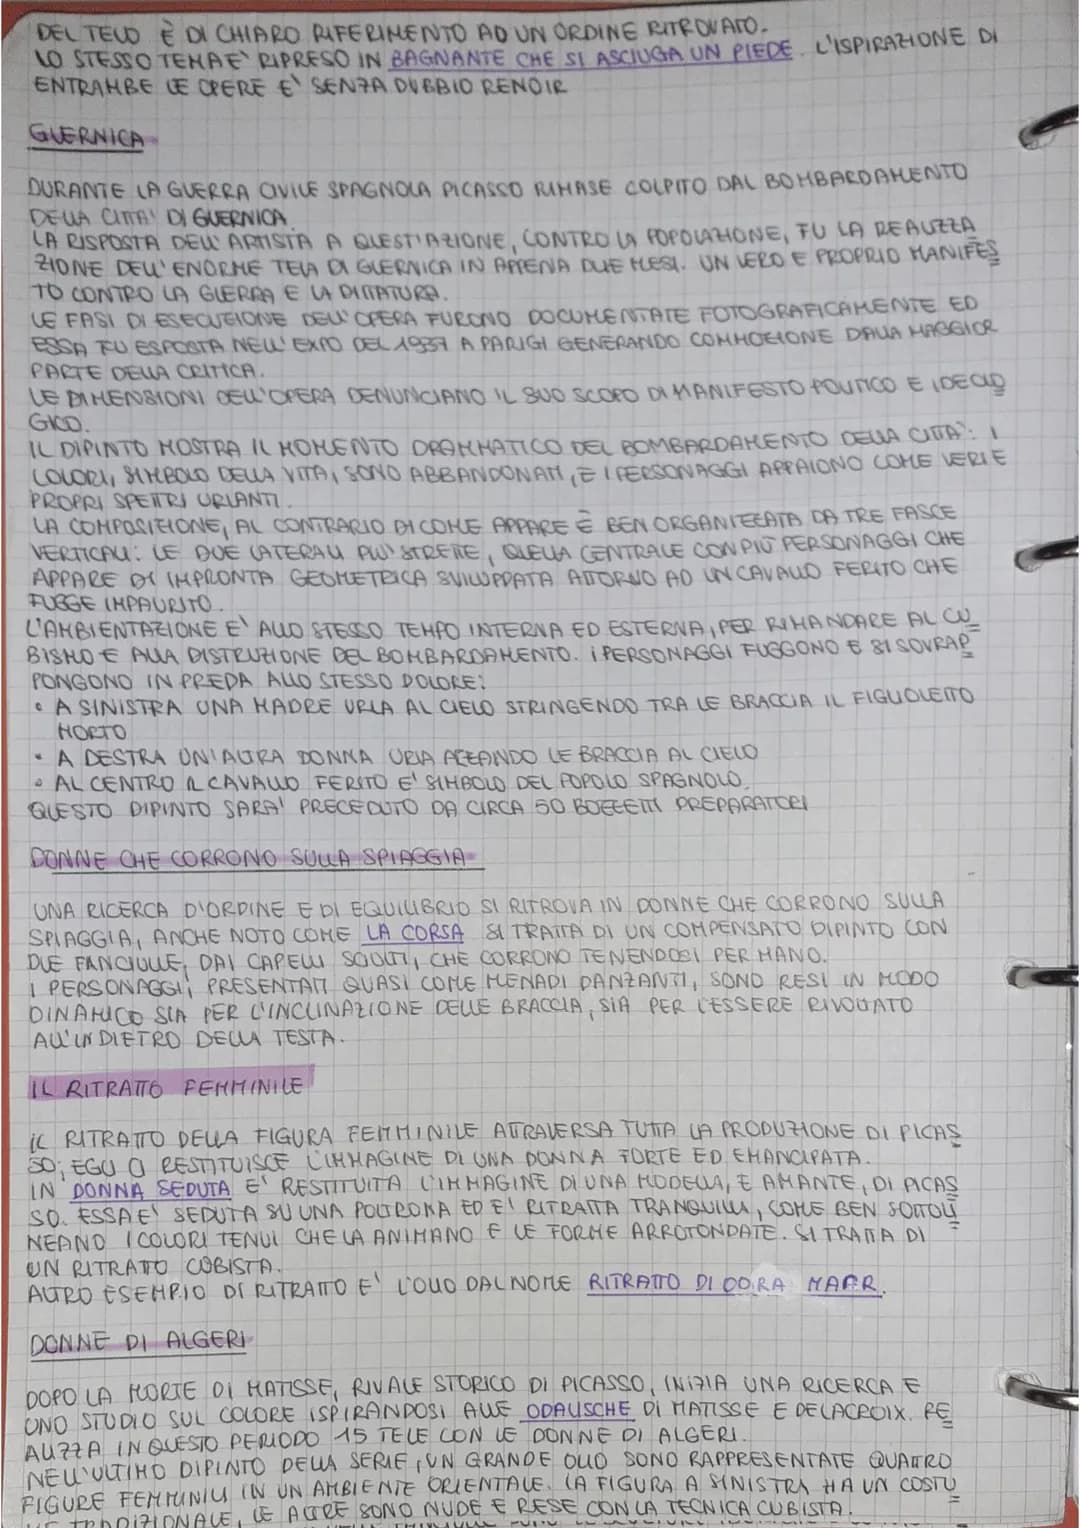 DEL TELO È DI CHIARO RIFERIMENTO AD UN ORDINE RITROVATO.
LO STESSO TEMA E' RIPRESO IN BAGNANTE CHE SI ASCIUGA UN PIEDE. L'ISPIRAZIONE DI
ENTRAMBE LE OPERE E' SENZA DUBBIO RENOIR
GUERNICA
DURANTE LA GUERRA CIVILE SPAGNOLA PICASSO RIMASE COLPITO DAL BOMBARDAMENTO
DELLA CITTA' DI GUERNICA.
LA RISPOSTA DELL'ARTISTA A QUEST'AZIONE, CONTRO LA POPOLAZIONE, FU LA REALIZZA
ZIONE DELL'ENORME TELA DI GUERNICA IN APPENA DUE MESI. UN VERO E PROPRIO MANIFES
TO CONTRO LA GUERRA E LA DITTATURA.
LE FASI DI ESECUZIONE DELL'OPERA FURONO DOCUMENTATE FOTOGRAFICAMENTE ED
ESSA FU ESPOSTA NELL'EXPO DEL 1937 A PARIGI GENERANDO COMMOZIONE DALLA MAGGIOR
PARTE DELLA CRITICA.
LE DIMENSIONI DELL'OPERA DENUNCIANO IL SUO SCOPO DI MANIFESTO POLITICO E IDEOLO
GICO.
IL DIPINTO MOSTRA IL MOMENTO DRAMMATICO DEL BOMBARDAMENTO DELLA CITTA': I
COLORI, SIMBOLO DELLA VITA, SONO ABBANDONATI, E I PERSONAGGI APPAIONO COME VERI E
PROPRI SPETTRI URLANTI.
LA COMPOSIZIONE, AL CONTRARIO DI COME APPARE È BEN ORGANIZZATA DA TRE FASCE
VERTICALI: LE DUE LATERALI PIU' STRETTE, QUELLA CENTRALE CON PIÙ PERSONAGGI CHE
APPARE DI IMPRONTA GEOMETRICA SVILUPPATA ATTORNO AD UN CAVALLO FERITO CHE
FUGGE IMPAURITO.
L'AMBIENTAZIONE E' ALLO STESSO TEMPO INTERNA ED ESTERNA, PER RIMANDARE AL CU
BISMO E ALLA DISTRUZIONE DEL BOMBARDAMENTO. I PERSONAGGI FUGGONO E SI SOVRAP
PONGONO IN PREDA ALLO STESSO DOLORE:
• A SINISTRA UNA MADRE URLA AL CIELO STRINGENDO TRA LE BRACCIA IL FIGLIOLETTO
MORTO
• A DESTRA UN'ALTRA DONNA URLA ALZANDO LE BRACCIA AL CIELO
• AL CENTRO IL CAVALLO FERITO E' SIMBOLO DEL POPOLO SPAGNOLO.
QUESTO DIPINTO SARA' PRECEDUTO DA CIRCA 50 BOZZETTI PREPARATORI
DONNE CHE CORRONO SULLA SPIAGGIA
UNA RICERCA D'ORDINE E DI EQUILIBRIO SI RITROVA IN DONNE CHE CORRONO SULLA
SPIAGGIA, ANCHE NOTO COME LA CORSA SI TRATTA DI UN COMPENSATO DIPINTO CON
DUE FANCIULLE, DAI CAPELLI SCIOLTI, CHE CORRONO TENENDOSI PER MANO.
I PERSONAGGI, PRESENTATI QUASI COME MENADI DANZANTI, SONO RESI IN MODO
DINAMICO SIA PER L'INCLINAZIONE DELLE BRACCIA, SIA PER L'ESSERE RIVOLTATO
ALL'INDIETRO DELLA TESTA.
IL RITRATTO FEMMINILE
IL RITRATTO DELLA FIGURA FEMMINILE ATTRAVERSA TUTTA LA PRODUZIONE DI PICAS
SO; EGLI CI RESTITUISCE L'IMMAGINE DI UNA DONNA FORTE ED EMANCIPATA.
IN DONNA SEDUTA E' RESTITUITA L'IMMAGINE DI UNA MODELLA, E AMANTE, DI PICAS
SO. ESSA E' SEDUTA SU UNA POLTRONA ED E' RITRATTA TRANQUILLA, COME BEN SOTTOLI
NEANO I COLORI TENUI CHE LA ANIMANO E LE FORME ARROTONDATE. SI TRATTA DI
UN RITRATTO CUBISTA.
ALTRO ESEMPIO DI RITRATTO E' L'OLIO DAL NOME RITRATTO DI DORA MAAR.
DONNE DI ALGERI
DOPO LA MORTE DI MATISSE, RIVALE STORICO DI PICASSO, INIZIA UNA RICERCA E
UNO STUDIO SUL COLORE ISPIRANDOSI ALLE ODALISCHE DI MATISSE E DELACROIX. RE
ALIZZA IN QUESTO PERIODO 15 TELE CON LE DONNE DI ALGERI.
NELL'ULTIMO DIPINTO DELLA SERIE, UN GRANDE OLIO SONO RAPPRESENTATE QUATTRO
FIGURE FEMMINILI IN UN AMBIENTE ORIENTALE. LA FIGURA A SINISTRA HA UN COSTU
ME TRADIZIONALE, LE ALTRE SONO NUDE E RESE CON LA TECNICA CUBISTA.